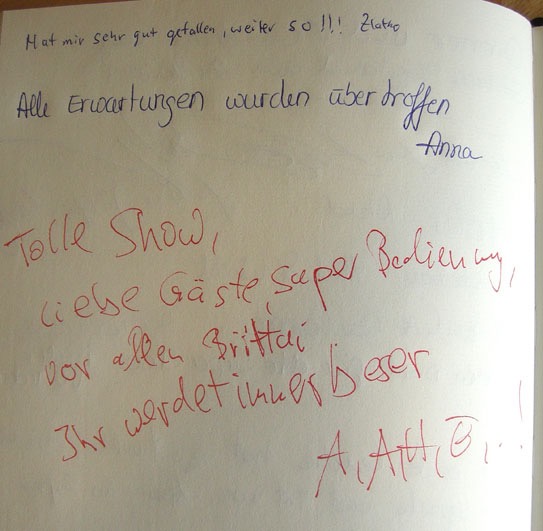 Hat mir sehr gut gefallen, weiter so!!! Zlatko
Alle Erwartungen wurden übertroffen
Anna
Tolle Show,
liebe Gäste, super Bedienung,
vor allen Brittai
Ihr werdet immer beser
A, A, H, B, ..!